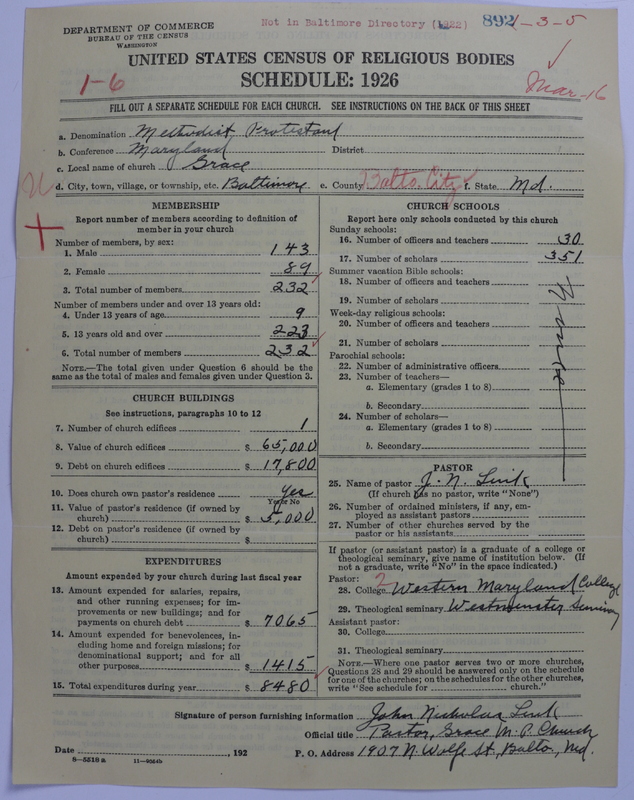 Not in Baltimore Directory (1922)
892
1-3-5
DEPARTMENT OF COMMERCE
BUREAU OF THE CENSUS
WASHINGTON
UNITED STATES CENSUS OF RELIGIOUS BODIES
1-6
SCHEDULE: 1926
Mar-16
FILL OUT A SEPARATE SCHEDULE FOR EACH CHURCH. SEE INSTRUCTIONS ON THE BACK OF THIS SHEET
a. Denomination Methodist Protestant
b. Conference Maryland District
c. Local name of church Grace
d. City, town, village, or township, etc. Baltimore e. County Balto. City f. State Md.
MEMBERSHIP
Report number of members according to definition of
member in your church
Number of members, by sex:
1. Male 143
2. Female 89
3. Total number of members 232
Number of members under and over 13 years old:
4. Under 13 years of age 9
5. 13 years old and over 223
6. Total number of members 232
NOTE.—The total given under Question 6 should be the
same as the total of males and females given under Question 3.
CHURCH BUILDINGS
See instructions, paragraphs 10 to 12
7. Number of church edifices 1
8. Value of church edifices $ 65,000
9. Debt on church edifices $ 17,800
10. Does church own pastor's residence Yes
Yes or No
11. Value of pastor's residence (if owned by
church) $ 5,000
12. Debt on pastor's residence (if owned by
church) $
EXPENDITURES
Amount expended by your church during last fiscal year
13. Amount expended for salaries, repairs,
and other running expenses; for im-
provements or new buildings; and for
payments on church debt $ 7065
14. Amount expended for benevolences, in-
cluding home and foreign missions; for
denominational support; and for all
other purposes $ 1415
15. Total expenditures during year $ 8480
CHURCH SCHOOLS
Report here only schools conducted by this church
Sunday schools:
16. Number of officers and teachers 30
17. Number of scholars 351
Summer vacation Bible schools:
18. Number of officers and teachers
19. Number of scholars
Week-day religious schools:
20. Number of officers and teachers
21. Number of scholars
Parochial schools:
22. Number of administrative officers
23. Number of teachers—
a. Elementary (grades 1 to 8)
b. Secondary
24. Number of scholars—
a. Elementary (grades 1 to 8)
b. Secondary
None
PASTOR
25. Name of pastor J. N. Link
(If church has no pastor, write "None")
26. Number of ordained ministers, if any, em-
ployed as assistant pastors
27. Number of other churches served by the
pastor or his assistants
If pastor (or assistant pastor) is a graduate of a college or
theological seminary, give name of institution below. (If
not a graduate, write "No" in the space indicated.)
Pastor:
28. College 2 Western Maryland College
29. Theological seminary Westminster Seminary
Assistant pastor:
30. College
31. Theological seminary
NOTE.—Where one pastor serves two or more churches,
Questions 28 and 29 should be answered only on the schedule
for one of the churches; on the schedules for the other churches,
write "See schedule for church."
Signature of person furnishing information John Nicholas Link
Official title Pastor, Grace M. P. Church
Date , 192 P. O. Address 1907 N. Wolfe St., Balto., Md.
8—5518 a 11—9554b